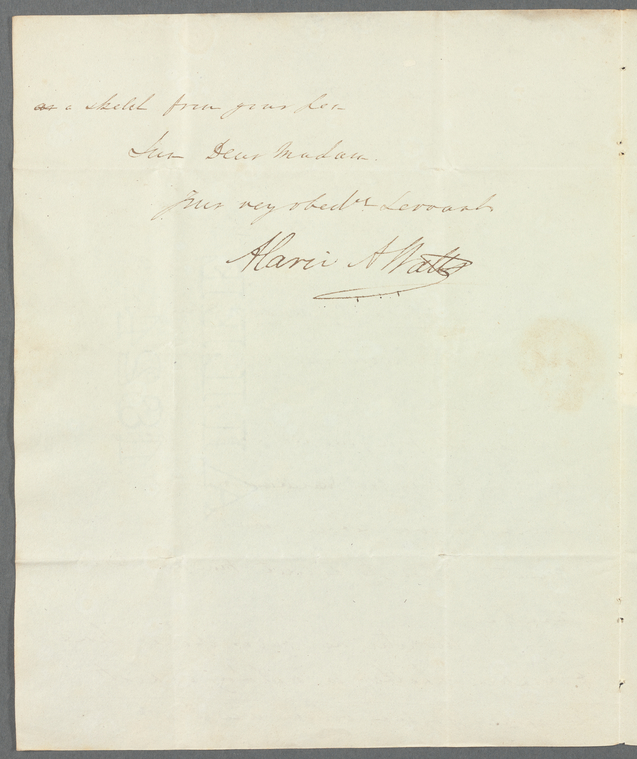 a sketch from your pen
I am Dear Madam.
Your very obedt Servant
Alaric A Watts